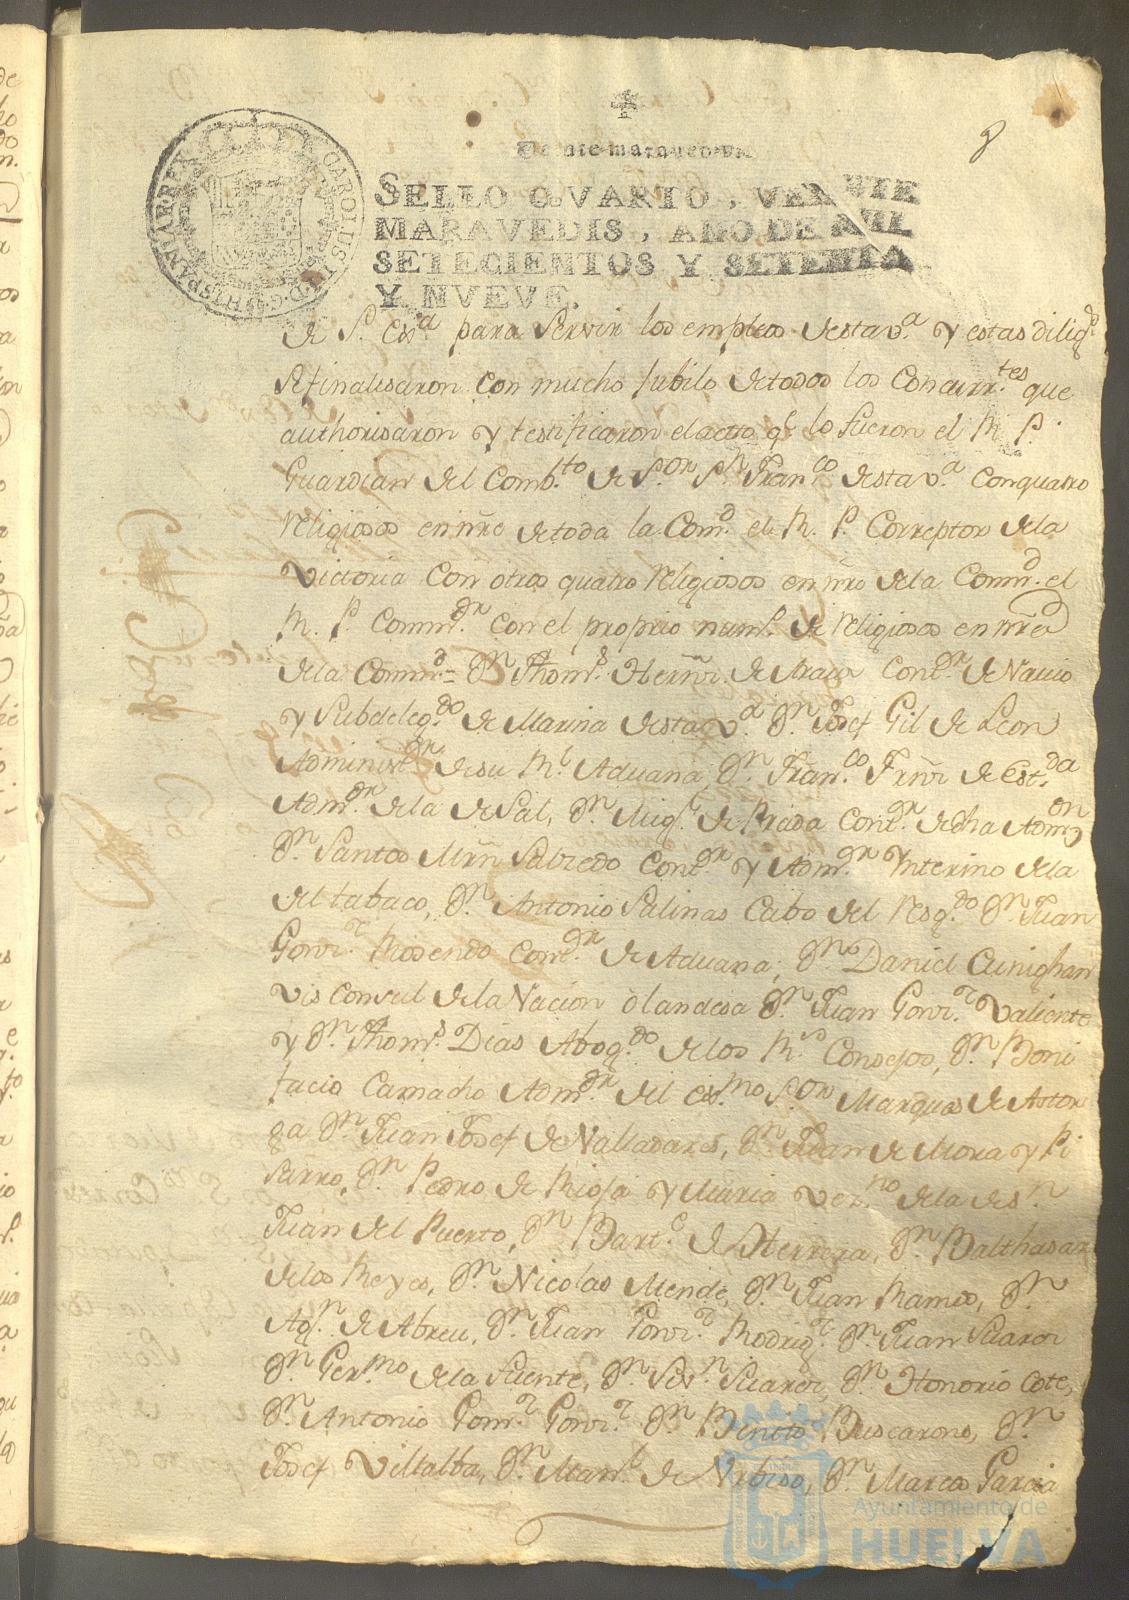 8
Veinte maravedis.
SELLO QVARTO, VEINTE
MARAVEDIS, AÑO DE MIL
SETECIENTOS Y SETENTA
Y NVEVE.
CAROLUS III D. G. HISPANIAR. REX
de S. Exª para servir los empleos destavª y estas dilig.s
Sefinalisaron con mucho Jubilo detodos los Concurr.tes que
authorisaron y testificaron elacto q.e lo fueron el R. P.
Guardian del Comb.to de S.or S.n Fran.co destavª conquatro
religiosos en nre detoda la Com.d el R. P. Correptor dela
Victoria con otros quatro religiosos en nre dela Comm.d el
R. P. Comm.dr con el proprio num.o de religiosos en nre
dela Comm.d = D.n Thom.s Hern. de Contr. de Navio
y Subdeleg.do de Marina destavª D.n Josef Gil de Leon
Administ.dr desu Rl. Aduana, D.n Fran.co Frnz de Est.da
Adm.dr dela de Sal, D.n Mig.l de Prada Cont.dr dedha Adm.on
D.n Santos Mrn Salzedo Cont.dr y Adm.dr Ynterino dela
del tabaco, D.n Antonio Salinas Cabo del resg.do D.n Juan
Gonz.z Rosendo Cont.dr de Aduana, D.n Daniel Cunighan
vis Consul dela Nacion olandesa D.n Juan Gonz.z Valiente
y D.n Thom.s Dias Abog.do delos R.s Consejos, D.n Boni
facio Camacho Adm.dr del ex.mo S.or Marques de Astor
ga D.n Juan Josef de Valladares, D.n Juan de Mora y Pi
sarro, D.n Pedro de Rioja y Muria vez.no dela de S.n
Juan del Puerto, D.n Bart.e de Herrera, D.n Balthasar
delos Reyes, D.n Nicolas Mende, D.n Juan Ramos, D.n
Ag.n de Abreu, D.n Juan Gonz.z Rodrig.z D.n Juan Suarez
D.n Ger.mo dela Fuente, D.n Suarez, D.n Honorio Cote,
D.n Antonio Gom.z Gonz.z D.n Benito Buscarons, D.n
Josef Villalba, D.n Man.l de D.n Marcos Garcia
Ayuntamiento de
HUELVA